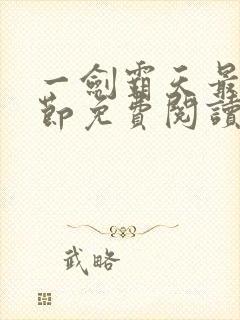 一劍霸天最
節免費閱讀
武略